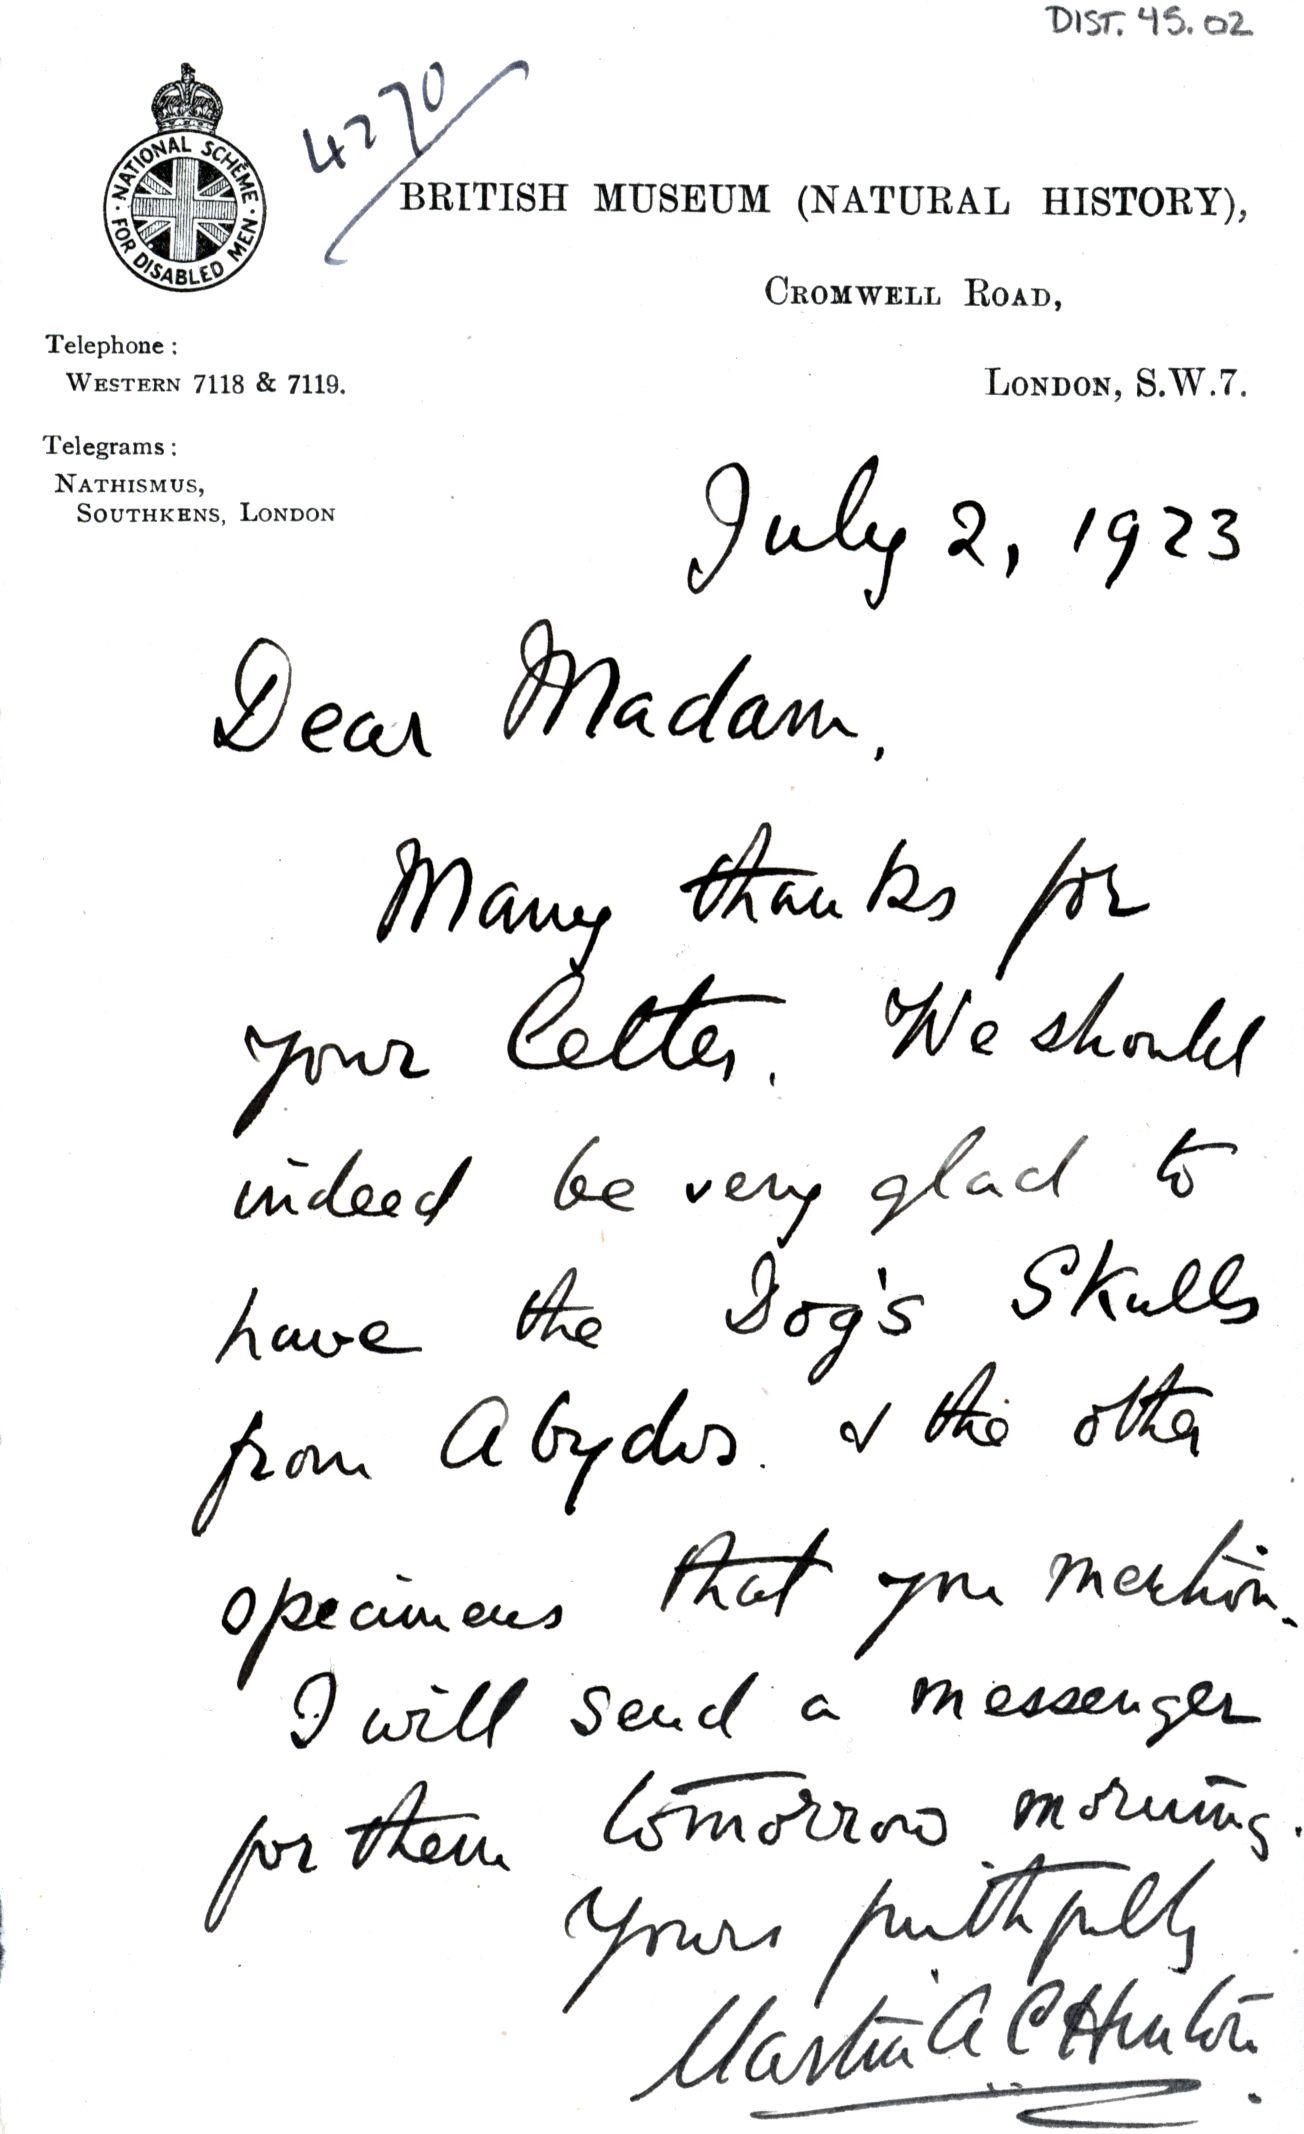 DIST. 45.02
4270
NATIONAL SCHEME
FOR DISABLED MEN
BRITISH MUSEUM (NATURAL HISTORY),
CROMWELL ROAD,
LONDON, S.W.7.
Telephone:
WESTERN 7118 & 7119.
Telegrams:
NATHISMUS,
SOUTHKENS, LONDON
July 2, 1923
Dear Madam,
Many thanks for
your letter. We should
indeed be very glad to
have the Dog's Skulls
from Abydos. & the other
specimens that you mention.
I will send a messenger
for them tomorrow morning.
Yours faithfully
Martin A C Hinton.